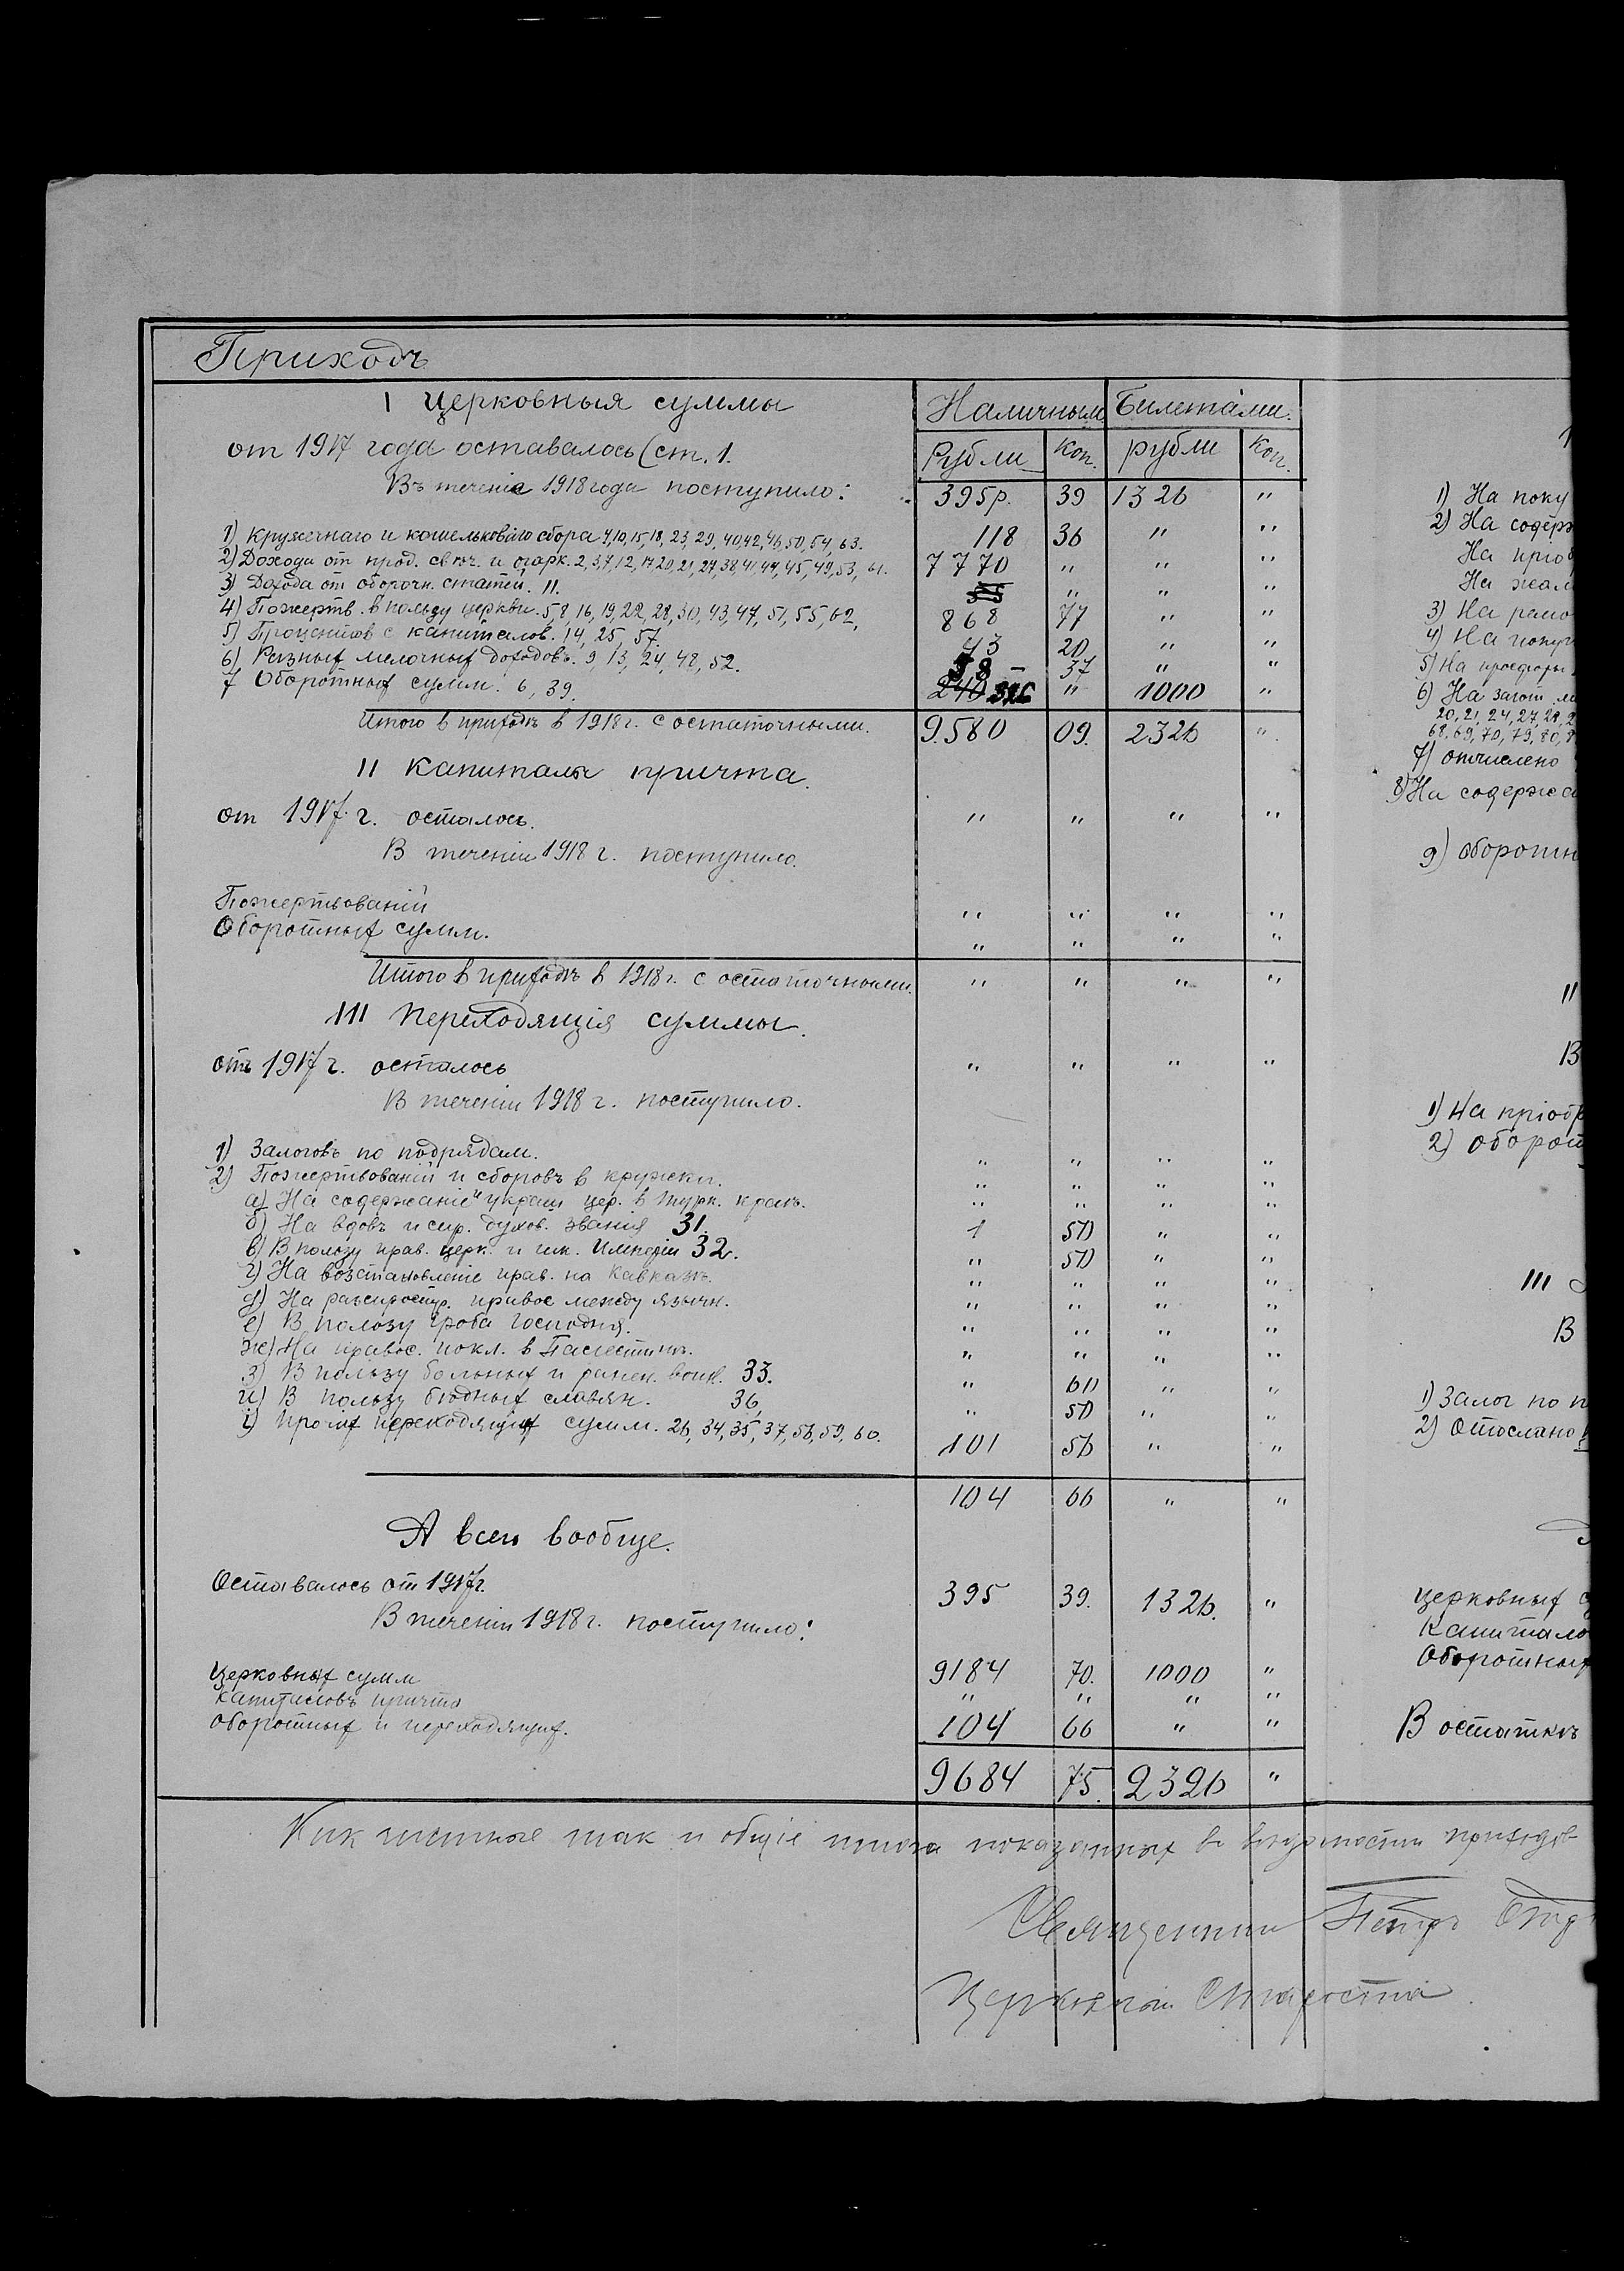 Приходъ
I Церковныя суммы
Наличными Билетами.
Рубли Коп. рубли Коп.
от 1917 года оставалось (ст. 1.
Въ теченіе 1918 года поступило: 395 р. 39 1326 "
1) Кружечнаго и кошельковаго сбора 4, 10, 15, 18, 23, 29, 40, 42, 46, 50, 54, 63. 118 36 " "
2) Дохода от прод. свѣч. и огарк. 2, 3, 7, 12, 17, 20, 21, 27, 38, 41, 44, 45, 49, 53, 61. 7770 " " "
3) Дохода от оброчн. статей. 11. " " "
4) Пожертв. в пользу церкви. 5, 8, 16, 19, 22, 28, 30, 43, 47, 51, 55, 62, 868 77 " "
5) Процентов с капиталов. 14, 25, 57. 43 20 " "
6) Разных мелочных доходовъ. 9, 13, 24, 48, 52. 58 37 " "
7 Оборотных сумм. 6, 39. 240 326 " 1000 "
Итого в приходѣ в 1918 г. с остаточными. 9.580 09. 2326 "
II Капитала причта.
от 1917 г. осталось. " " " "
В теченіи 1918 г. поступило.
Пожертвованій " " " "
Оборотных сумм. " " " "
Итого в приходѣ в 1918 г. с остаточными. " " " "
III Переходящія суммы.
отъ 1917 г. осталось " " " "
В теченіи 1918 г. поступило.
1) Залоговъ по подрядам. " " " "
2) Пожертвованій и сборовъ в кружки. " " " "
а) На содержаніе и украш цер. в турк. краѣ. " " " "
б) На вдовъ и сир. духов. званія 31. 1 50 " "
в) В пользу прав. церк. и шк. Имперіи 32. " 50 " "
г) На возстановленіе прав. на Кавказѣ. " " " "
д) На распростр. правос между язычн. " " " "
е) В пользу Гроба Господня. " " " "
ж) На правос. покл. в Палестинѣ. " " " "
з) В пользу больных и ранен. воин. 33. " 60 " "
и) В пользу бѣдных славян. 36, " 50 " "
і) Прочих переходящих сумм. 26, 34, 35, 37, 56, 59, 60. 101 56 " "
104 66 " "
А всего вообще.
Оставалось от 1917 г. 395 39. 1326. "
В теченіи 1918 г. поступило:
Церковных сумм 9184 70. 1000 "
Капиталовъ причта " " " "
Оборотных и переходящих. 104 66 " "
9684 75. 2326 "
Как частные так и общіе итога показанных въ вѣдомости приходов
Священник Петръ
Церковный Староста.
1) На поку
2) На содерж
На прио
На жал
3) На ремо
4) На покуп
5) На просфоры
6) На загот
20, 21, 24, 27, 28, 2
68, 69, 70, 79, 80, 8
7) отчислено
8) На содержа
9) оборотн
II
В
1) На пріобр
2) оборот
III
В
1) Залог по п
2) Отослано
Церковных с
Капитало
Оборотных
В остаткѣ